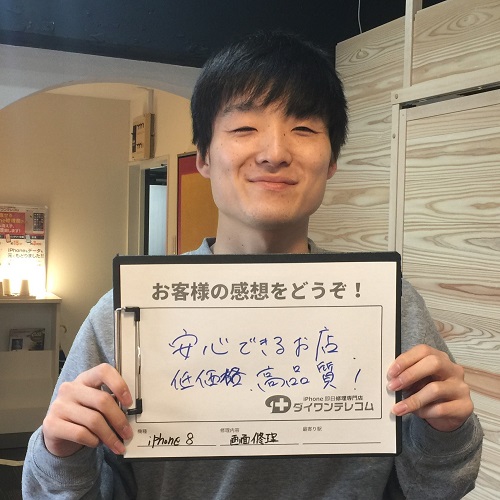 お客様の感想をどうぞ！
安心できるお店
低価格、高品質！
iPhone 即日修理専門店
ダイワンテレコム
機種 iPhone 8 修理内容 画面修理 最寄り駅